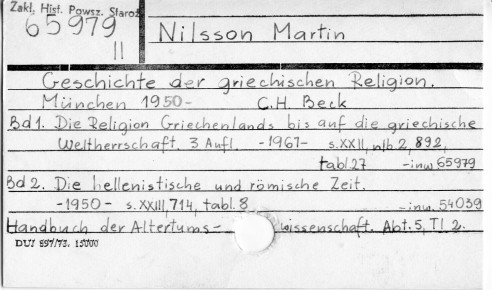 Zakł. Hist. Powsz. Staroż
65979
II
Nilsson Martin
Geschichte der griechischen Religion.
München 1950- C.H. Beck
Bd 1. Die Religion Griechenlands bis auf die griechische
Weltherrschaft. 3 Aufl. -1967- s. XXII, nlb. 2, 892,
tabl 27 -inw 65979
Bd 2. Die hellenistische und römische Zeit.
-1950- s. XXIII, 714, tabl. 8 -inw. 54039
Handbuch der Altertums- wissenschaft. Abt. 5, Tl 2.
DUJ 897/73. 15000